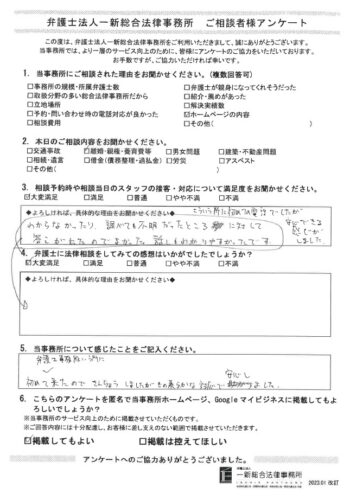 弁護士法人一新総合法律事務所　ご相談者様アンケート
この度は、弁護士法人一新総合法律事務所をご利用いただきまして、誠にありがとうございます。
当事務所では、より一層のサービス向上のために、皆様にアンケートのご協力をいただいております。
お手数ですが、ご協力いただければ幸いです。
1．当事務所にご相談された理由をお聞かせください。（複数回答可）
□事務所の規模・所属弁護士数　□弁護士が親身になってくれそうだった
□取扱分野の多い総合法律事務所だから　□紹介・薦めがあった
□立地場所　□解決実績数
□予約・問い合わせ時の電話対応が良かった　☑ホームページの内容
□相談費用　□その他（　）
2．本日のご相談内容をお聞かせください。
□交通事故　☑離婚・親権・養育費等　□男女問題　□建築・不動産問題
□相続・遺言　□借金（債務整理・過払金）　□労災　□アスベスト
□その他（　）
3．相談予約時や相談当日のスタッフの接客・対応について満足度をお聞かせください。
☑大変満足　□満足　□普通　□やや不満　□不満
◆よろしければ、具体的な理由をお聞かせください◆
こういう所に初めてで緊張でしたが
安心できる
感じが
しました
わからなかったり、誰にも不明だったところ に対して
答えがくれたのでよかった。話しもわかりやすかったです
4．弁護士に法律相談をしてみての感想はいかがでしたでしょうか？
☑大変満足　□満足　□普通　□やや不満　□不満
◆よろしければ、具体的な理由をお聞かせください◆
5．当事務所について感じたことをご記入ください。
弁護士事務所という所に
初めて来たので きんちょう しましたが その柔らかな 対応で
安心し
助かりました。
6．こちらのアンケートを匿名で当事務所ホームページ、Googleマイビジネスに掲載してもよ
ろしいでしょうか？
※当事務所のサービス向上のために掲載させていただくものです。
※ご回答内容には十分配慮し、お客様に差し支えのない範囲で掲載させていただきます。
☑掲載してもよい　□掲載は控えてほしい
アンケートへのご協力ありがとうございました。
弁護士法人
一新総合法律事務所
2023.01 改訂